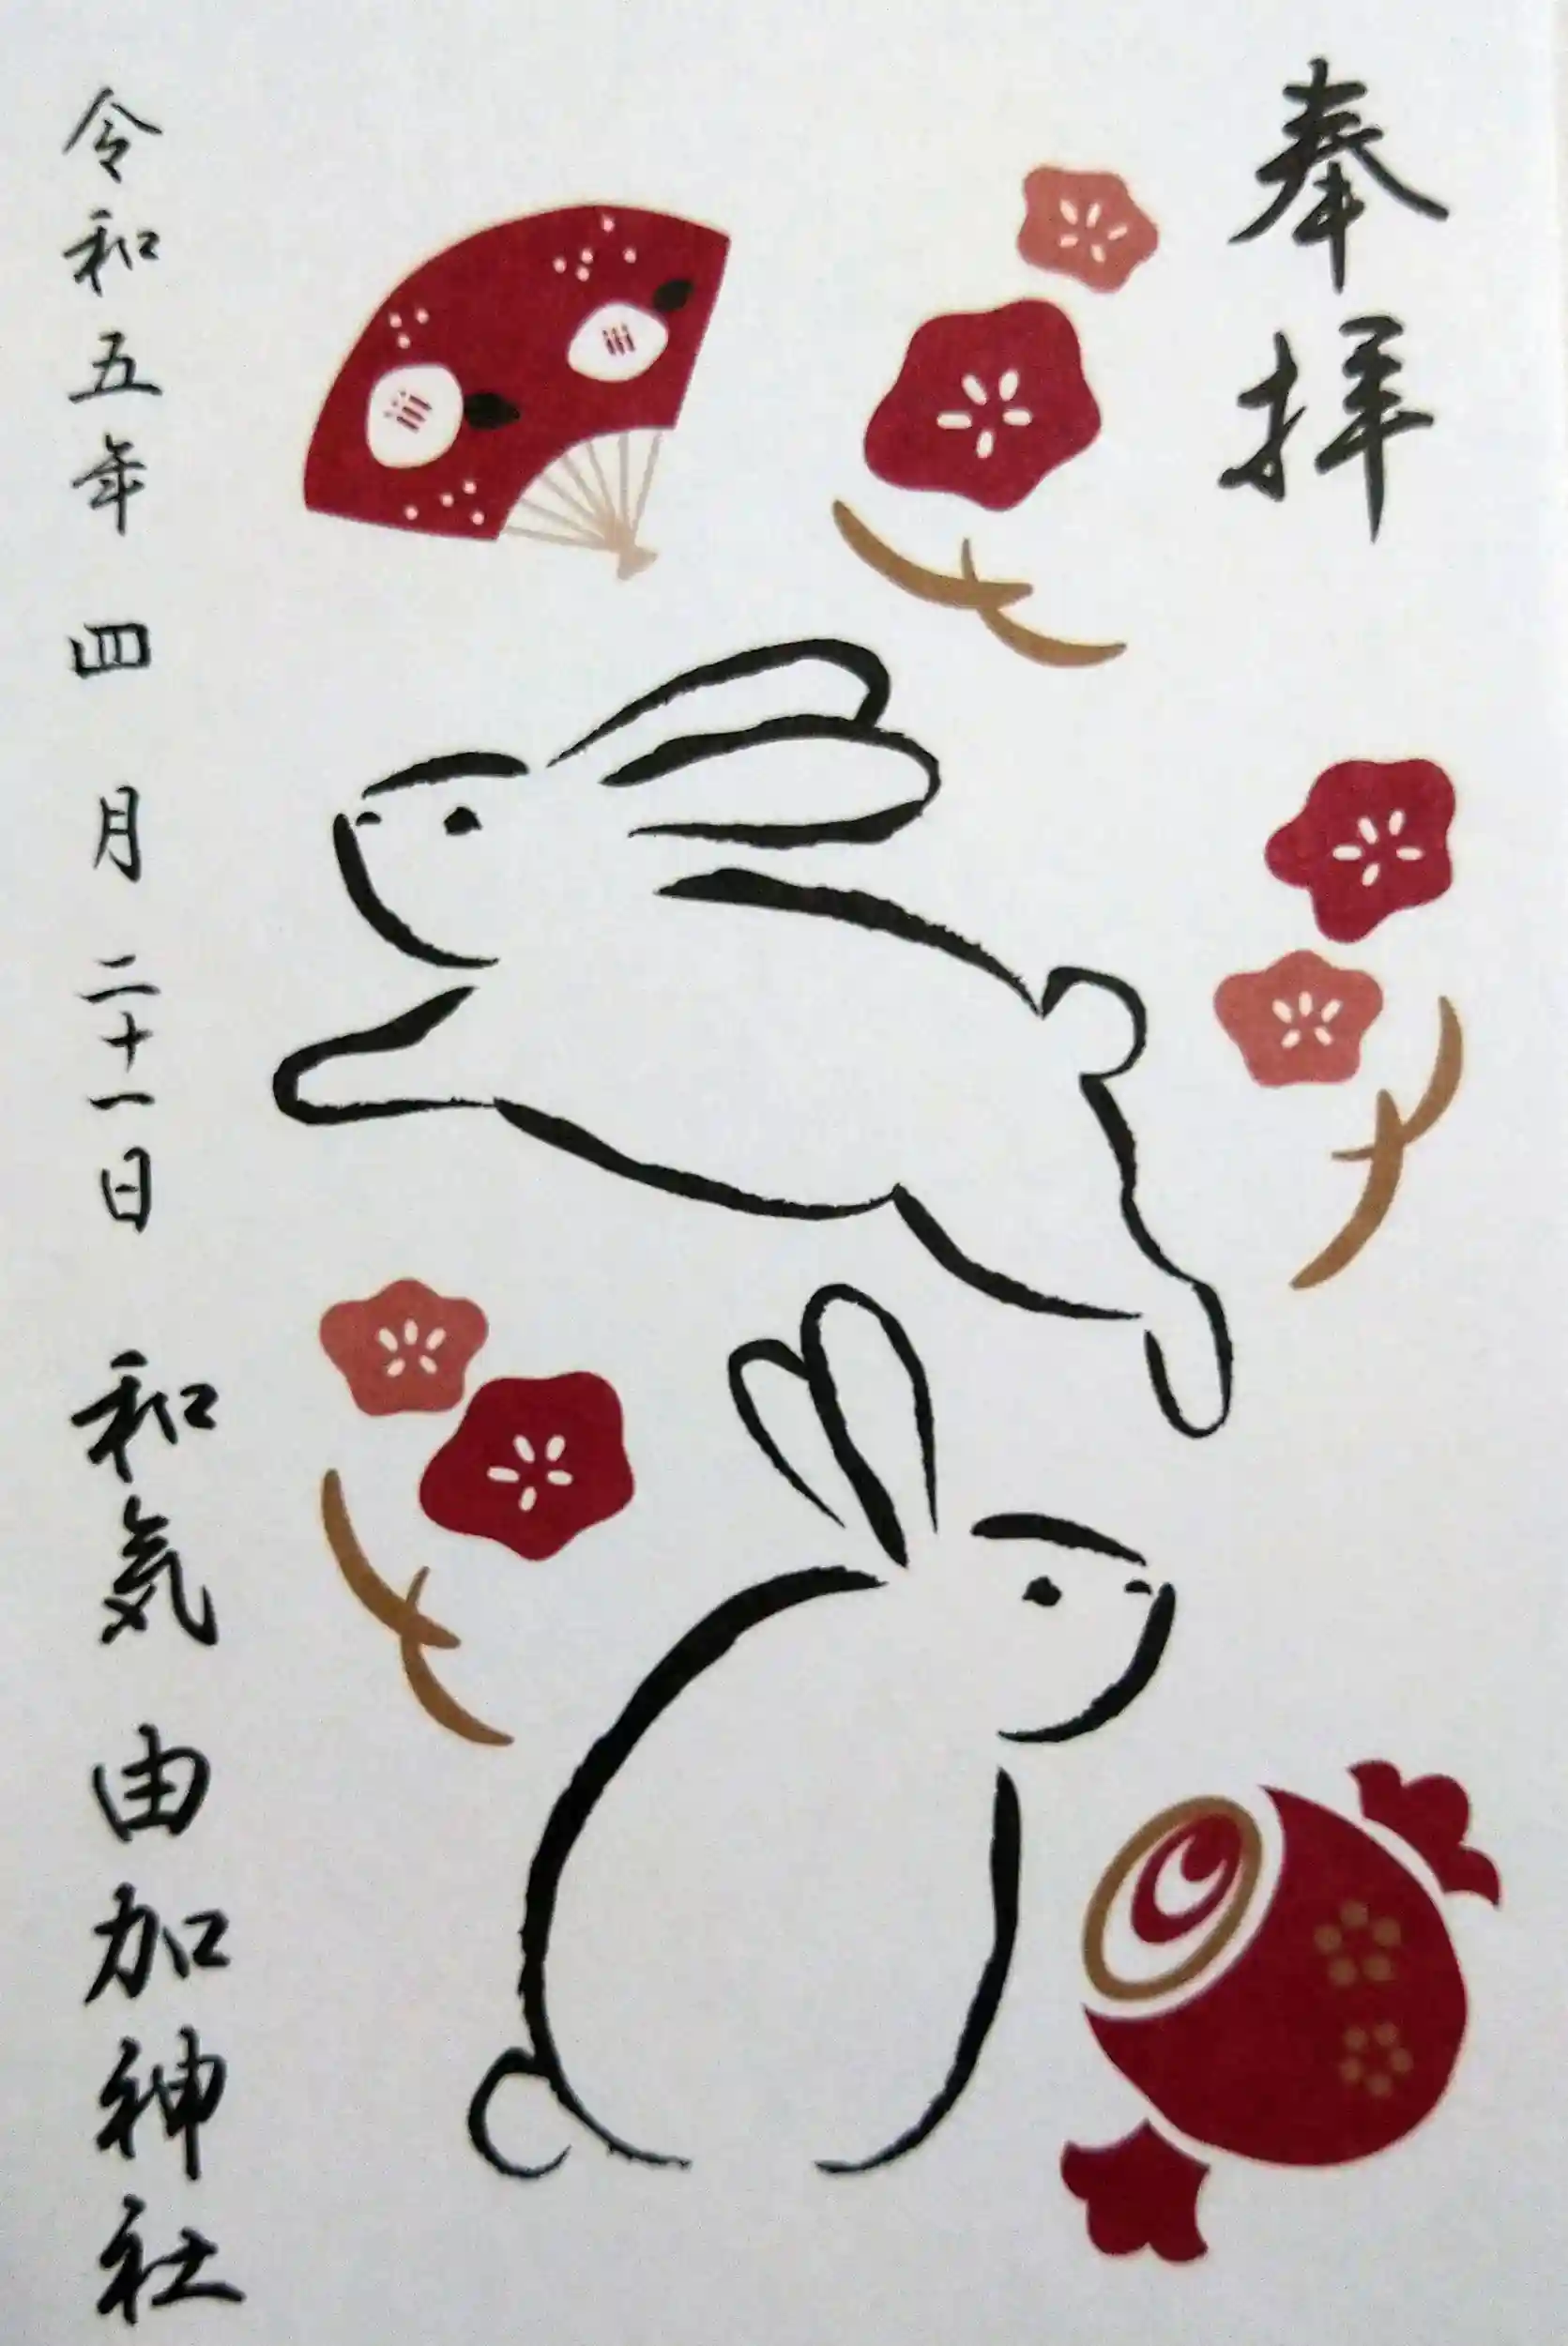 奉拝
令和五年四月二十一日 和気 由加神社